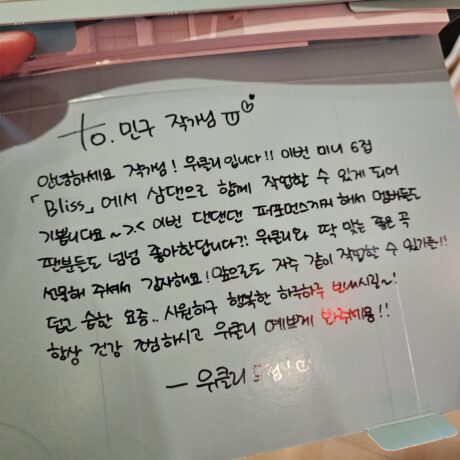 to. 민구 작가님
안녕하세요 작가님! 위클리입니다!! 이번 미니 6집
「Bliss」에서 삼댄으로 함께 작업할 수 있게 되어
기쁩니다요~>< 이번 단댄댄 퍼포먼스까지 해서 멤버들도
팬분들도 넘넘 좋아한답니다?! 위클리와 딱 맞는 좋은 곡
선물해 주셔서 감사해요! 앞으로도 자주 같이 작업할 수 있기를!!
덥고 습한 요즘.. 시원하구 행복한 하루하루 보내시길~!
항상 건강 조심하시고 위클리 예쁘게 봐주세용!!
— 위클리